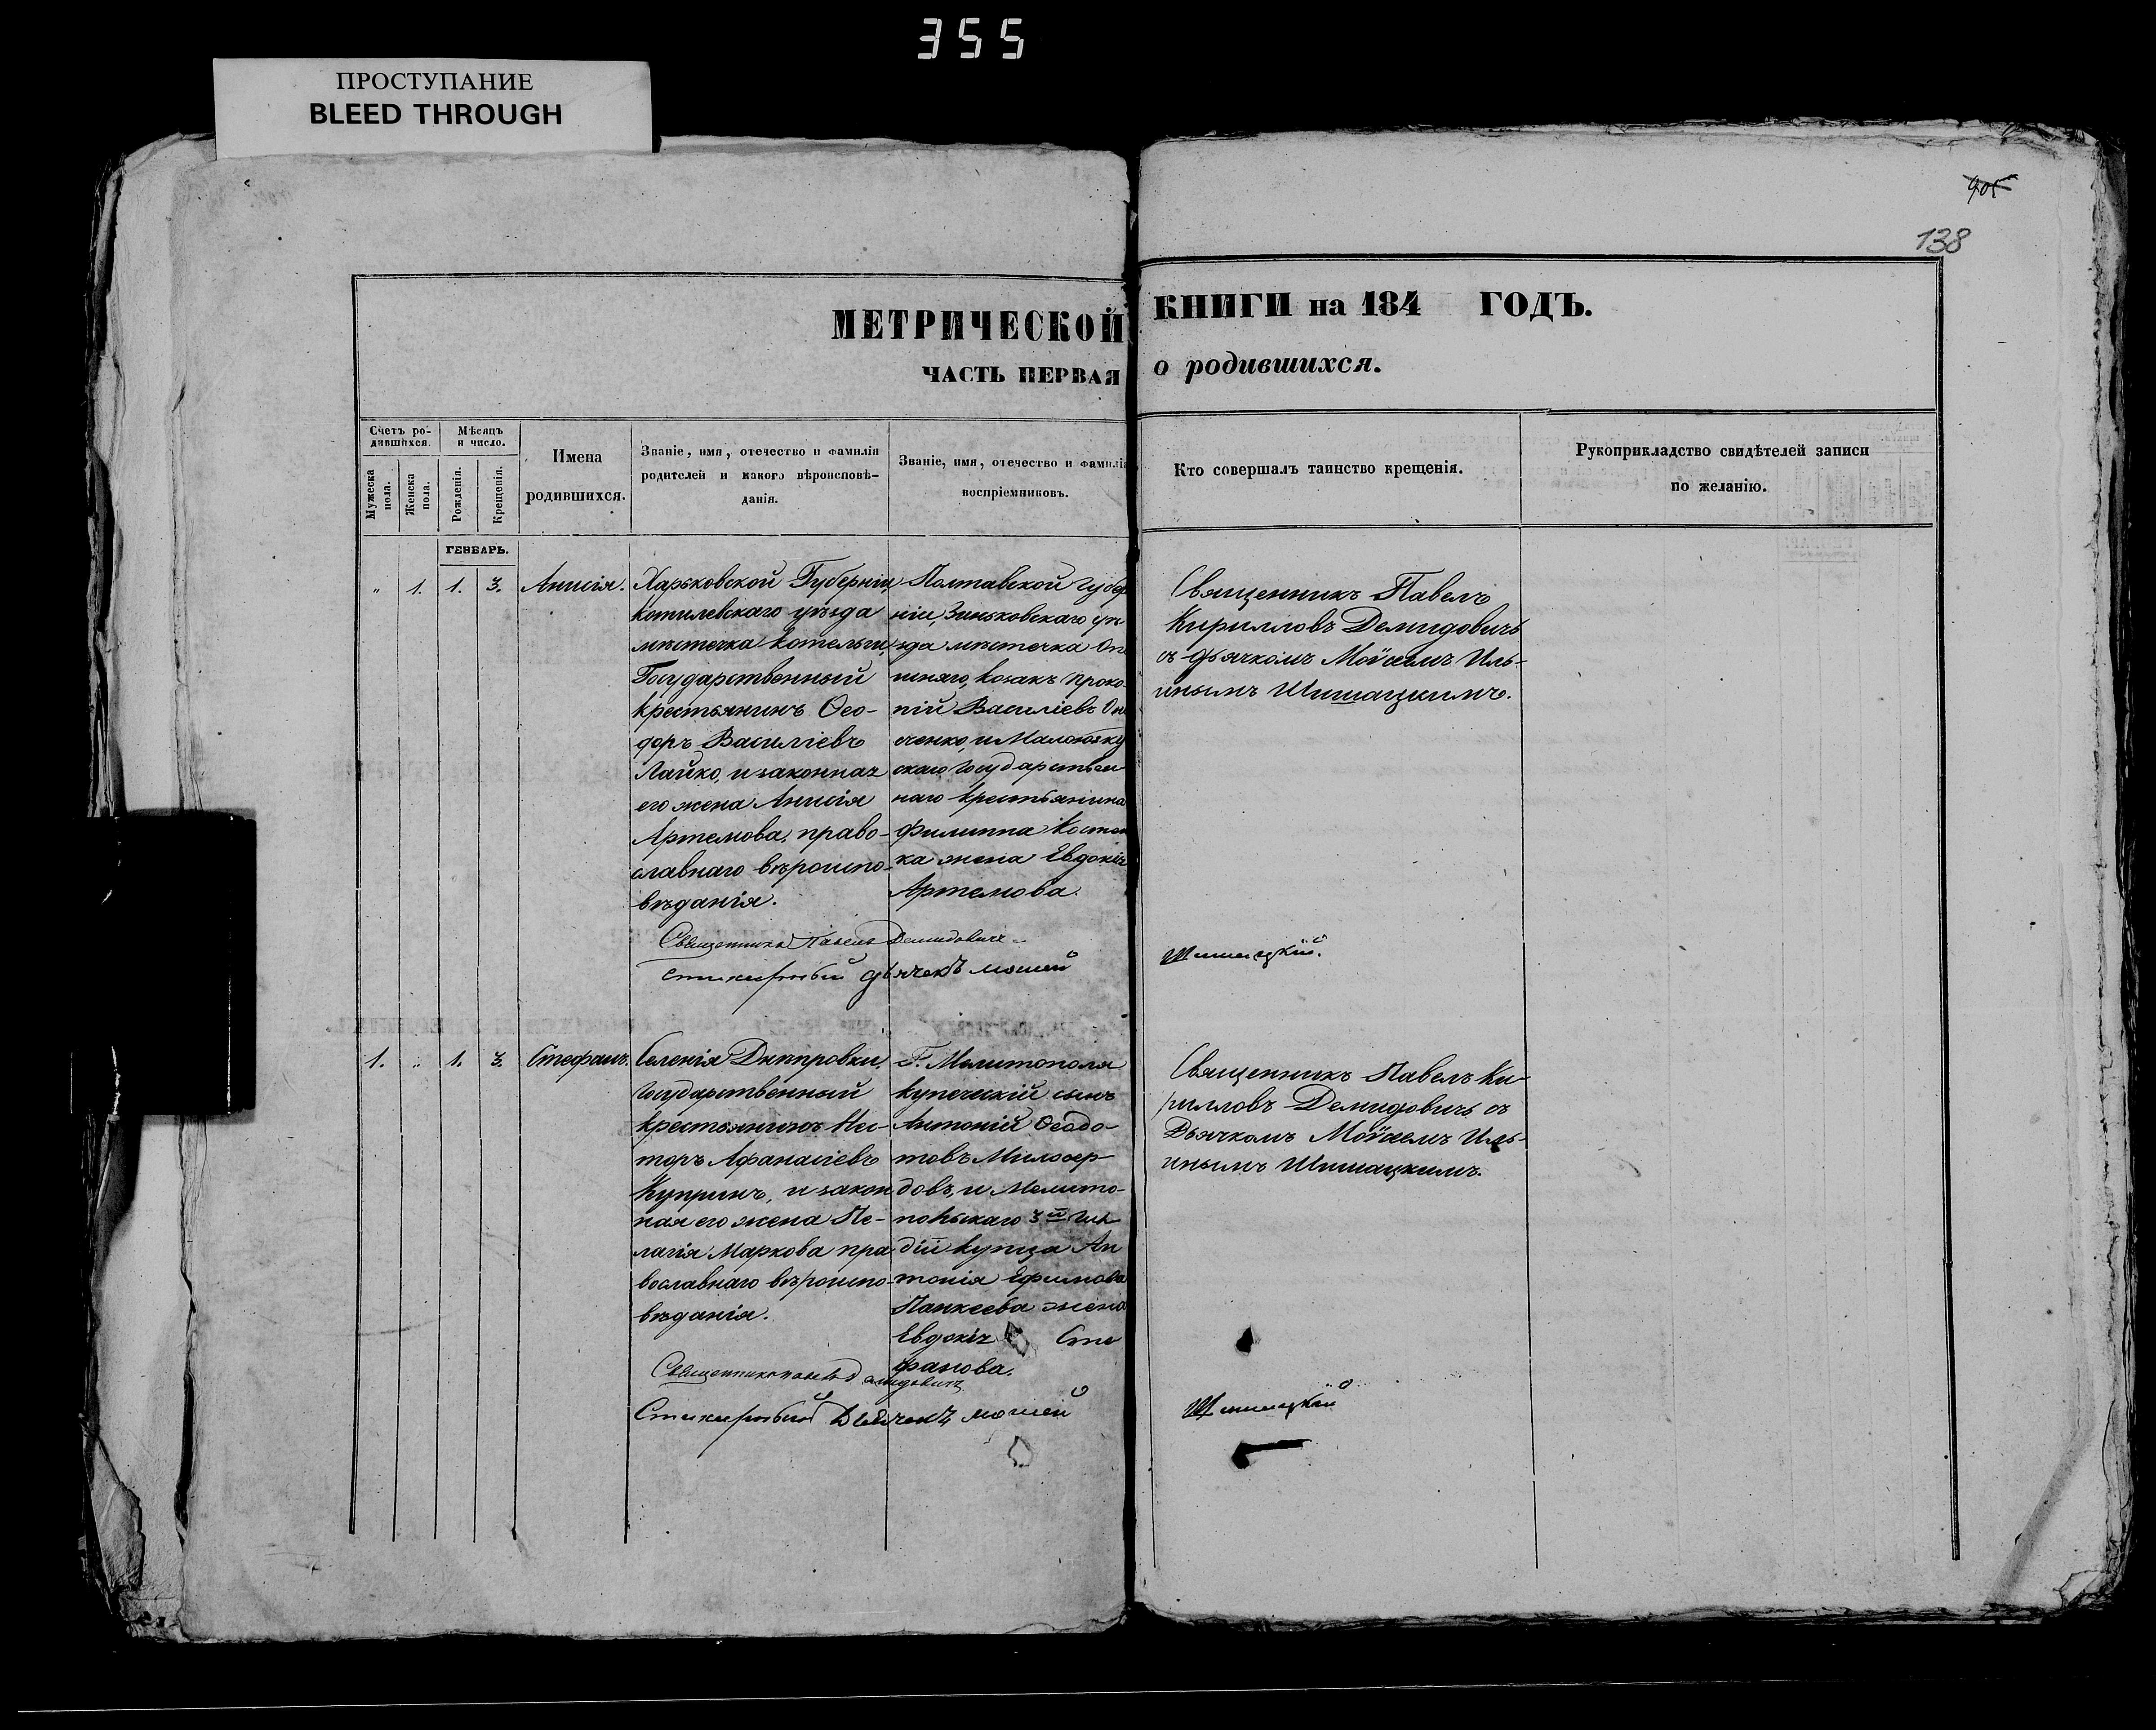 355
ПРОСТУПАНИЕ
BLEED THROUGH
405
138
МЕТРИЧЕСКОЙ КНИГИ на 184 ГОДЪ.
ЧАСТЬ ПЕРВАЯ о родившихся.
Счетъ ро-
дившихся.
Мужеска
пола.
Женска
пола.
Мѣсяцъ
и число.
Рожденія.
Крещенія.
Имена
родившихся.
Званіе, имя, отечество и фамилія
родителей и какого вѣроисповѣ-
данія.
Званіе, имя, отечество и фамилія
воспріемниковъ.
Кто совершалъ таинство крещенія.
Рукоприкладство свидѣтелей записи
по желанію.
ГЕНВАРЬ.
" 1. 1. 3. Анисія.
Харьковской Губерніи,
Котилевскаго уѣзда
мѣстечка Котельги,
Государственный
крестьянинъ Ѳео-
доръ Василіевъ
Лайко, и законная
его жена Анисія
Артемова, право-
славнаго вѣроиспо-
вѣданія.
Полтавской Губер
ніи, Зиньковскаго уѣ
зда мѣстечка Оп
шняго, козакъ Проко
пій Василіевъ Он
сченко, и
скаго Государствен
наго крестьянина
Филиппа Костен
ка жена Евдокія
Артемова.
Священникъ Павелъ
Кирилловъ Демидовичъ
съ дьячкомъ Моѵсеемъ Иль-
инымъ Шишацкимъ.
Священникъ Павелъ Демидовичъ
Стихирный дьячекъ Мосей Шишацкій.
1. " 1. 3. Стефанъ.
Селенія Днѣпровки,
Государственный
крестьянинъ Нес-
торъ Афанасіевъ
Купринъ, и закон
ная его жена Пе-
лагія Маркова пра
вославнаго вѣроиспо-
вѣданія.
Г. Мелитополя
купеческій сынъ
Антоній Ѳеодо-
товъ Милосер-
довъ, и Мелито-
польскаго 3й Гил
діи купца Ан
тонія Ефимова
Панкеева жена
Евдокія Сте
фанова.
Священникъ Павелъ Ки-
рилловъ Демидовичъ съ
Дьячкомъ Моѵсеемъ Иль-
инымъ Шишацкимъ.
Священникъ Павелъ Демидовичъ
Стихирный Дьячекъ Мосей Шишацкій